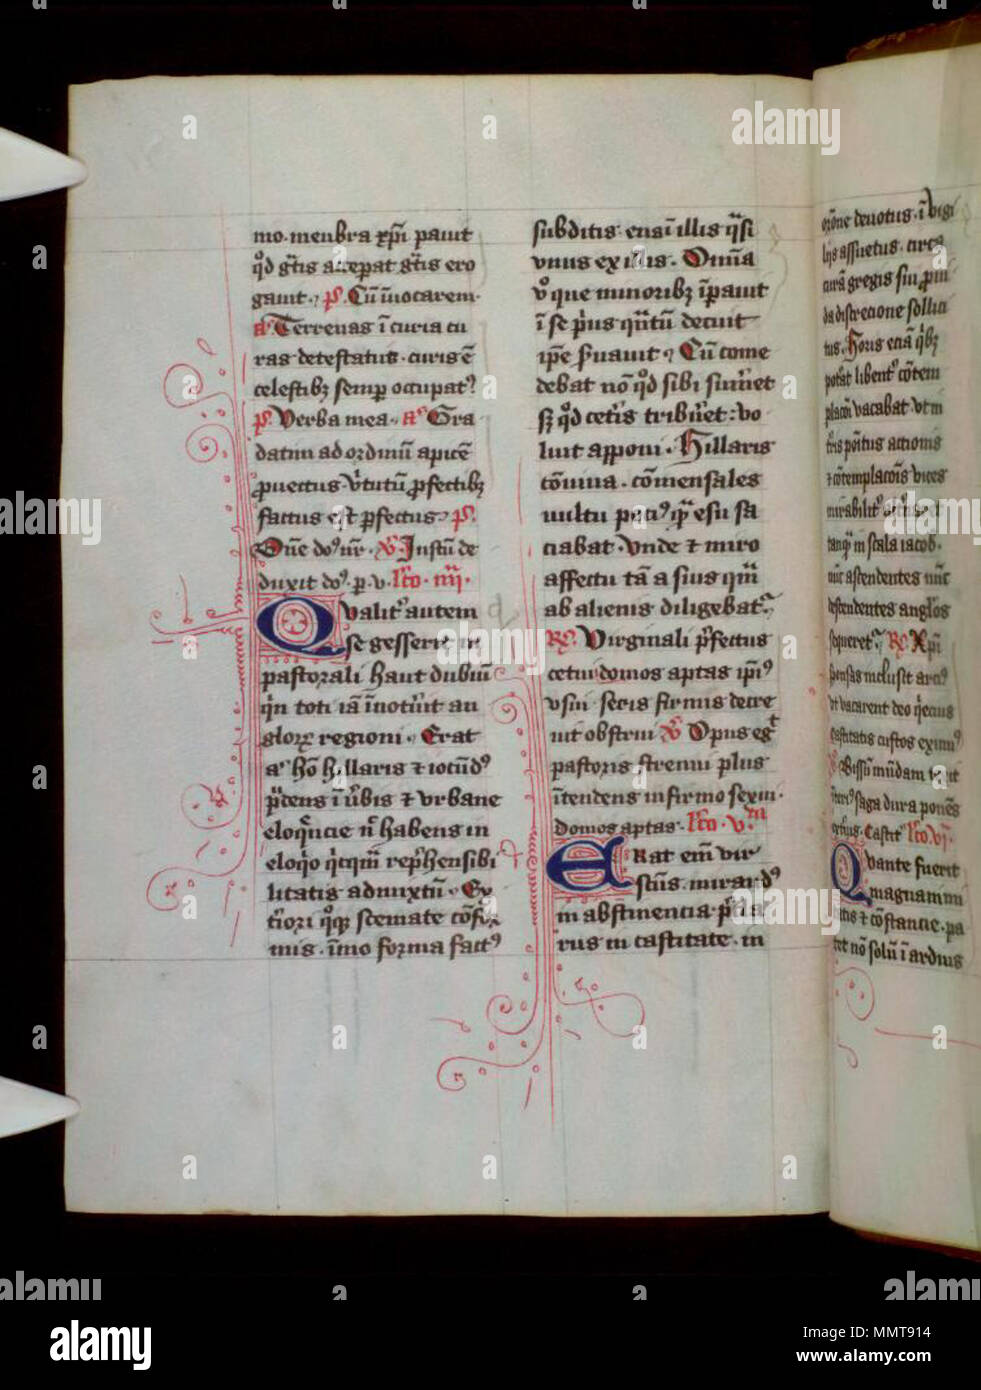 mo. menbra xp̄i pauit
qͦd gͣtis acceperat gͣtis ero
gauit. p̄. Cū īuocarem.
a. Terrenas ī curia cu
ras detestatus. curis ē
celestibꝫ semꝑ occupatꝰ
p̄. Verba mea. aͣ Gra
datim ad ordinū apicē
ꝓuectus. v̄tutū ꝓfectibꝫ
factus est ꝑfectus. p̄.
Dn̄e doꝰ nr̄. v̄. Iustū de
duxit doꝰ. p. v. lc̄o. iiii.
Qvalitꝰ autem
se gesserit in
pastorali haut dubiū
qͥn toti iā īnotuīt an
glorꝝ regioni. Erat
aͥ hō hillaris et iocūdꝰ
p̄dens ī v̄bis et vrbane
eloqͣncie nͦ habens in
eloqͥo qͥcqͣm rep̄hensibi
litatis admixtū. Ex
tīori qͦqꝫ scemate cōfor
mis. īmo forma factꝰ
subditis. erat ī illis qͣsi
vnus ex illis. Omīa
vͦ que minoribꝫ īꝑauit
ī se pͥus qͣntū decuit
ip̄e ẜuauit. Cū come
debat nō qͦd sibi suffic̄et
sꝫ qͦd cetīs tribūet: vo
luit apponi. Hillaris
cōuiua. cōmensales
uultu pociꝰ qͣm esu sa
ciabat. vnde et miro
affectu tā a suis qͣm
ab alienis diligebatꝰ
R̄. Virginali pͥfectus
cetui domos aptas ip̄iꝰ
vsui. seris firmis decre
uit obstrui v̄ Opus egit
pastoris strenui plus
ītendens infirmo sexui.
domos aptas. lc̄o. v.ta
Erat em̄ vir
istius. mirandꝰ
in abstinencia. pͥcla
rus in castitate. in
orōne deuotus. ī vigi
lijs assuetus. circa
curā gregis sui ꝓuī
da discrecione sollici
tus. Horis eciā qͥbꝫ
potͣat libentꝰ cōtem
placōi vacabat. vt in
tīs pōitus actionis
et cōtemplacōis vices
mirabilitͥ
tanqͣm in scala iacob.
nūc ascendentes nūc
descendentes anglōs
sequeretꝰ R̄. Xp̄i
sponsas inclusit arcꝰ
vt vacarent deo qͥecius
castitatis custos eximiꝰ
v̄. Bissū mūdam
saga dura ponēs
Castit lc̄o. vi.
Qvante fuerit
magnanimi
tatis et cōstancie. pa
tet nō solū ī arduis
alamy
MMT914
www.alamy.com